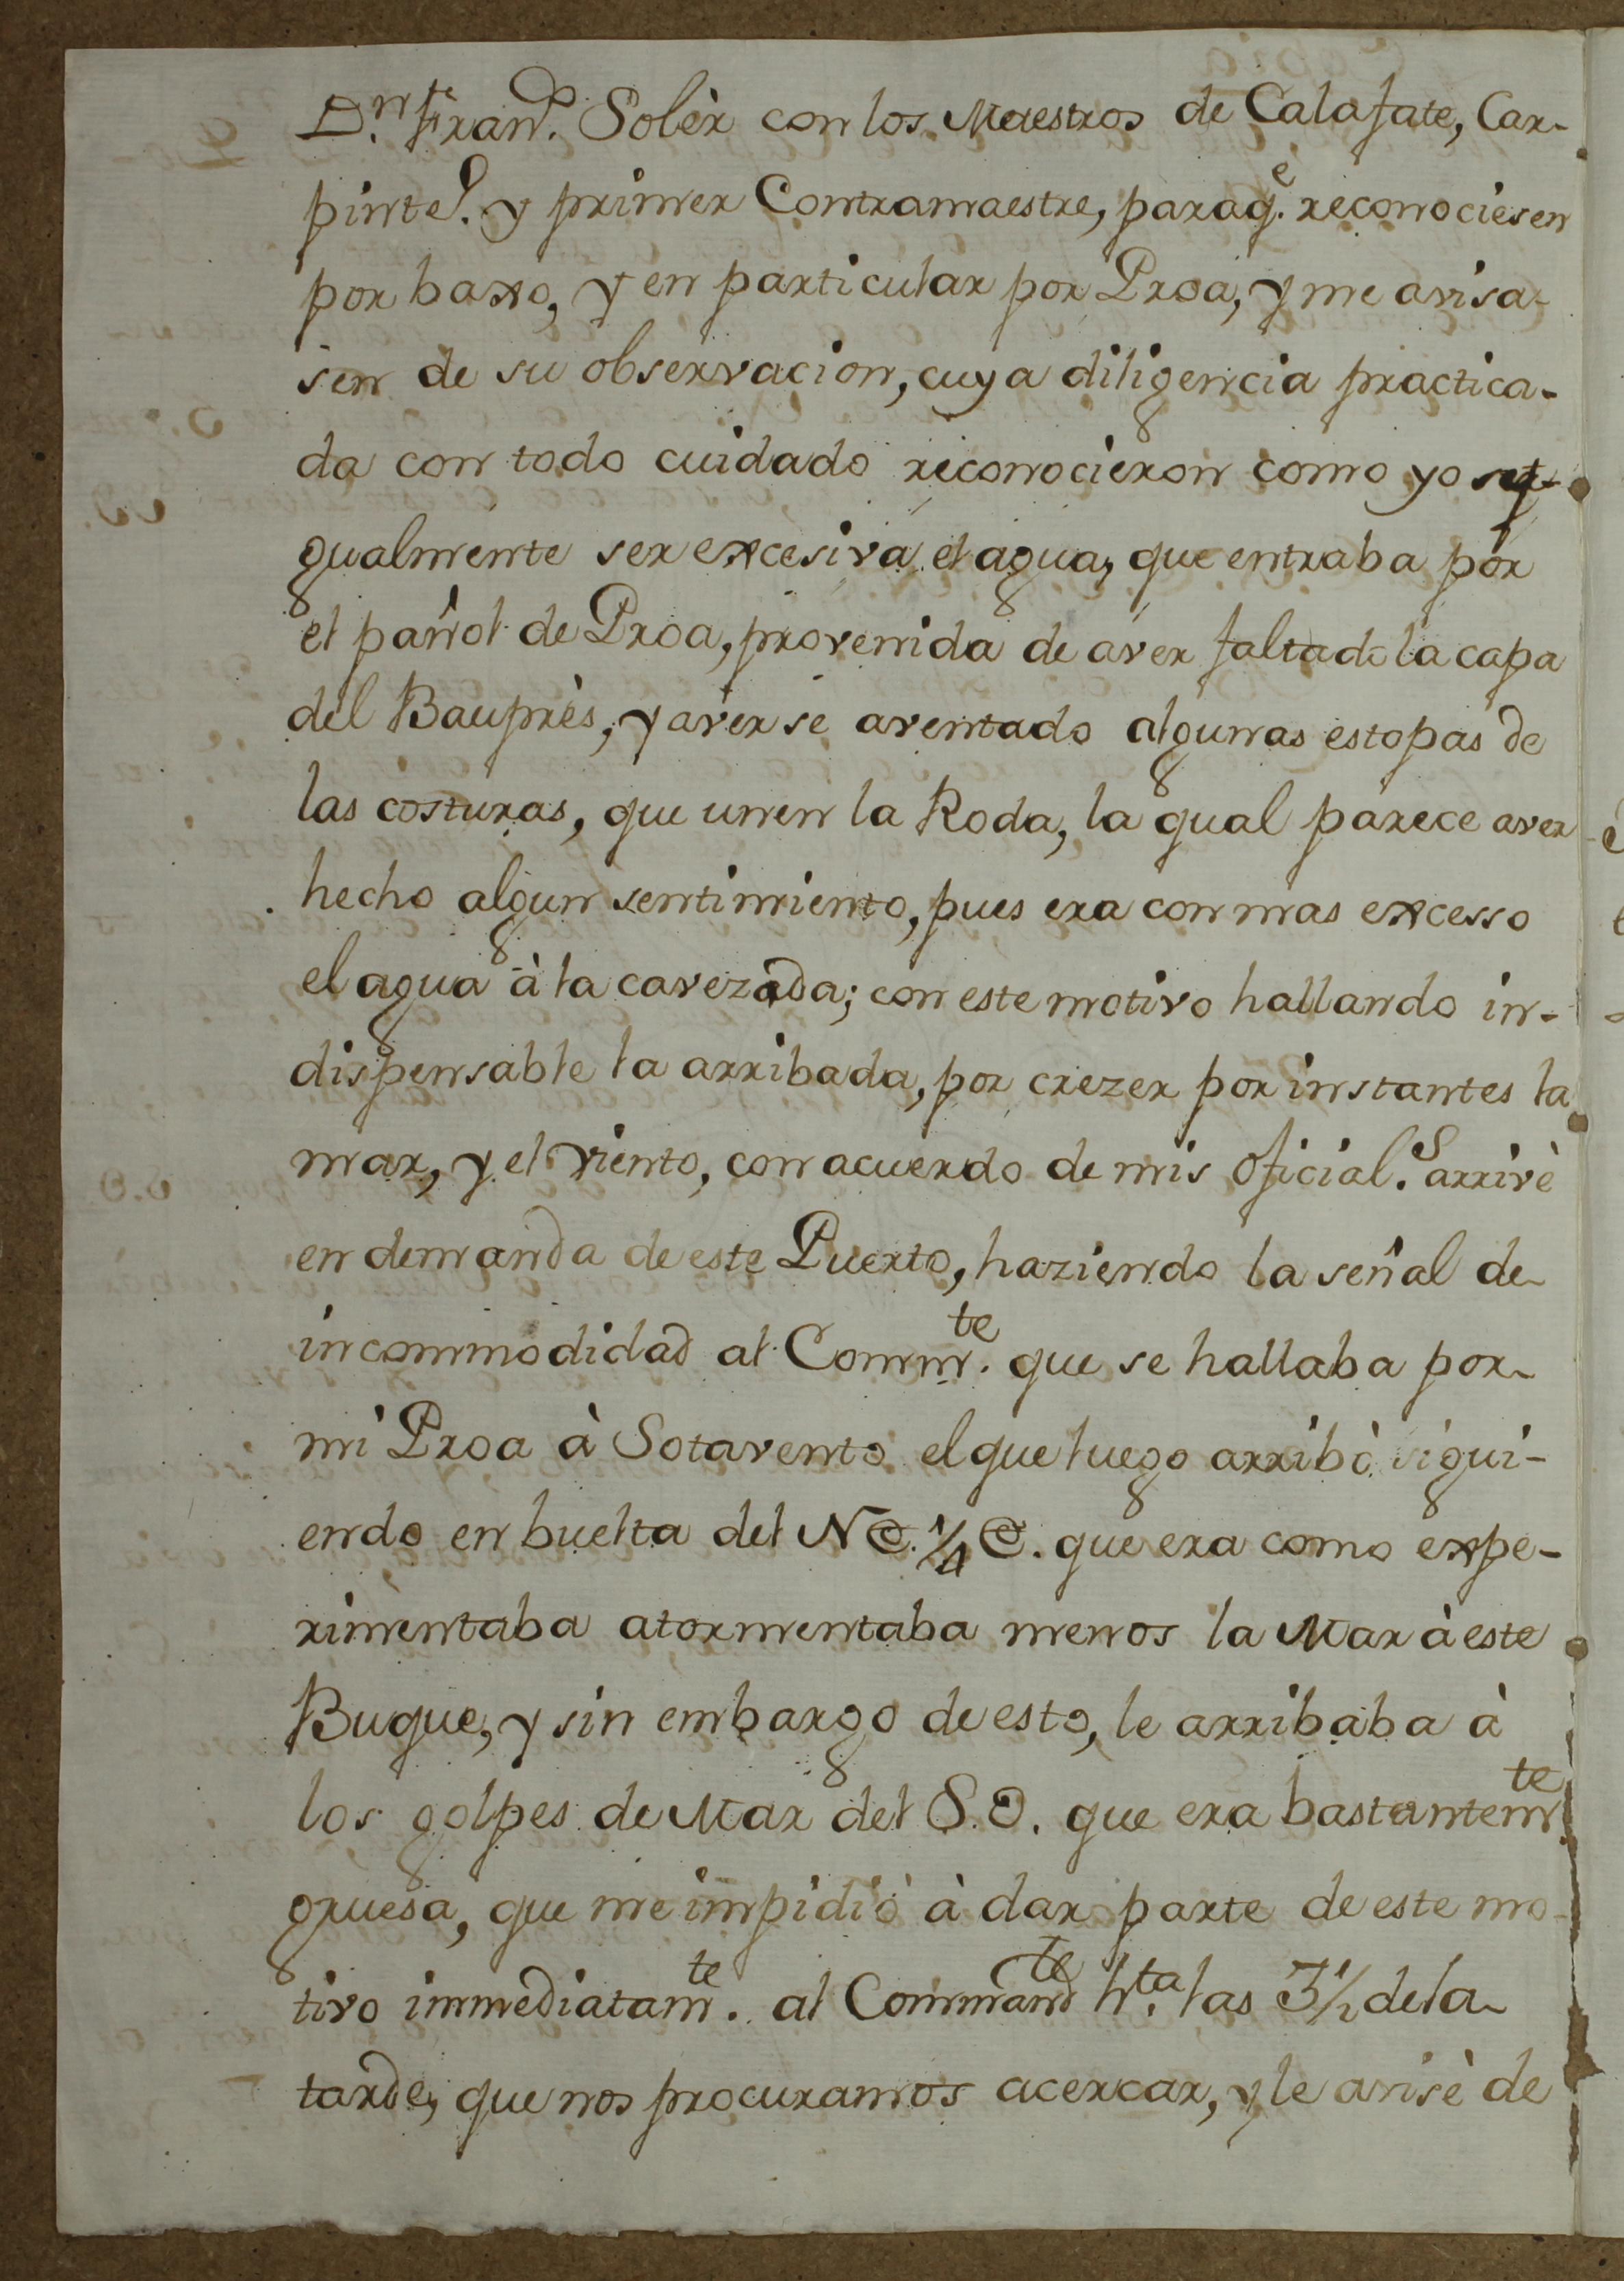 D.n Fran.co Solèr con los Maestros de Calafate, Car-
pinte.o y primer Contramaestre, paraq.e reconociesen
por baxo, y en particular por Proa, y me avisa-
sen de su observacion, cuya diligencia practica-
da con todo cuidado reconocieron como yo
gualmente ser excesiva el agua, que entraba por
el pañol de Proa, provenida de aver faltado la capa
del Bauprès, y averse aventado algunas estopas de
las costuras, que unen la Roda, la qual parece aver
hecho algun sentimiento, pues era con mas excesso
el agua à la cavezada; con este motivo hallando in-
dispensable la arribada, por crezer por instantes la
mar, y el viento, con acuerdo de mis oficial.s arrivè
en demanda de este Puerto, haziendo la señal de
incommodidad al Comm.te que se hallaba por
mi Proa à Sotavento el que luego arribò sigui-
endo en buelta del NE. 1/4 E. que era como expe-
rimentaba atormentaba menos la Mar à este
Buque, y sin embargo de esto, le arribaba à
los golpes de Mar del S.O. que era bastantem.te
gruesa, que me impidiò à dar parte de este mo-
tivo immediatam.te al Command.te h.ta las 3 1/2 de la
tarde, que nos procuramos acercar, y le avisè de